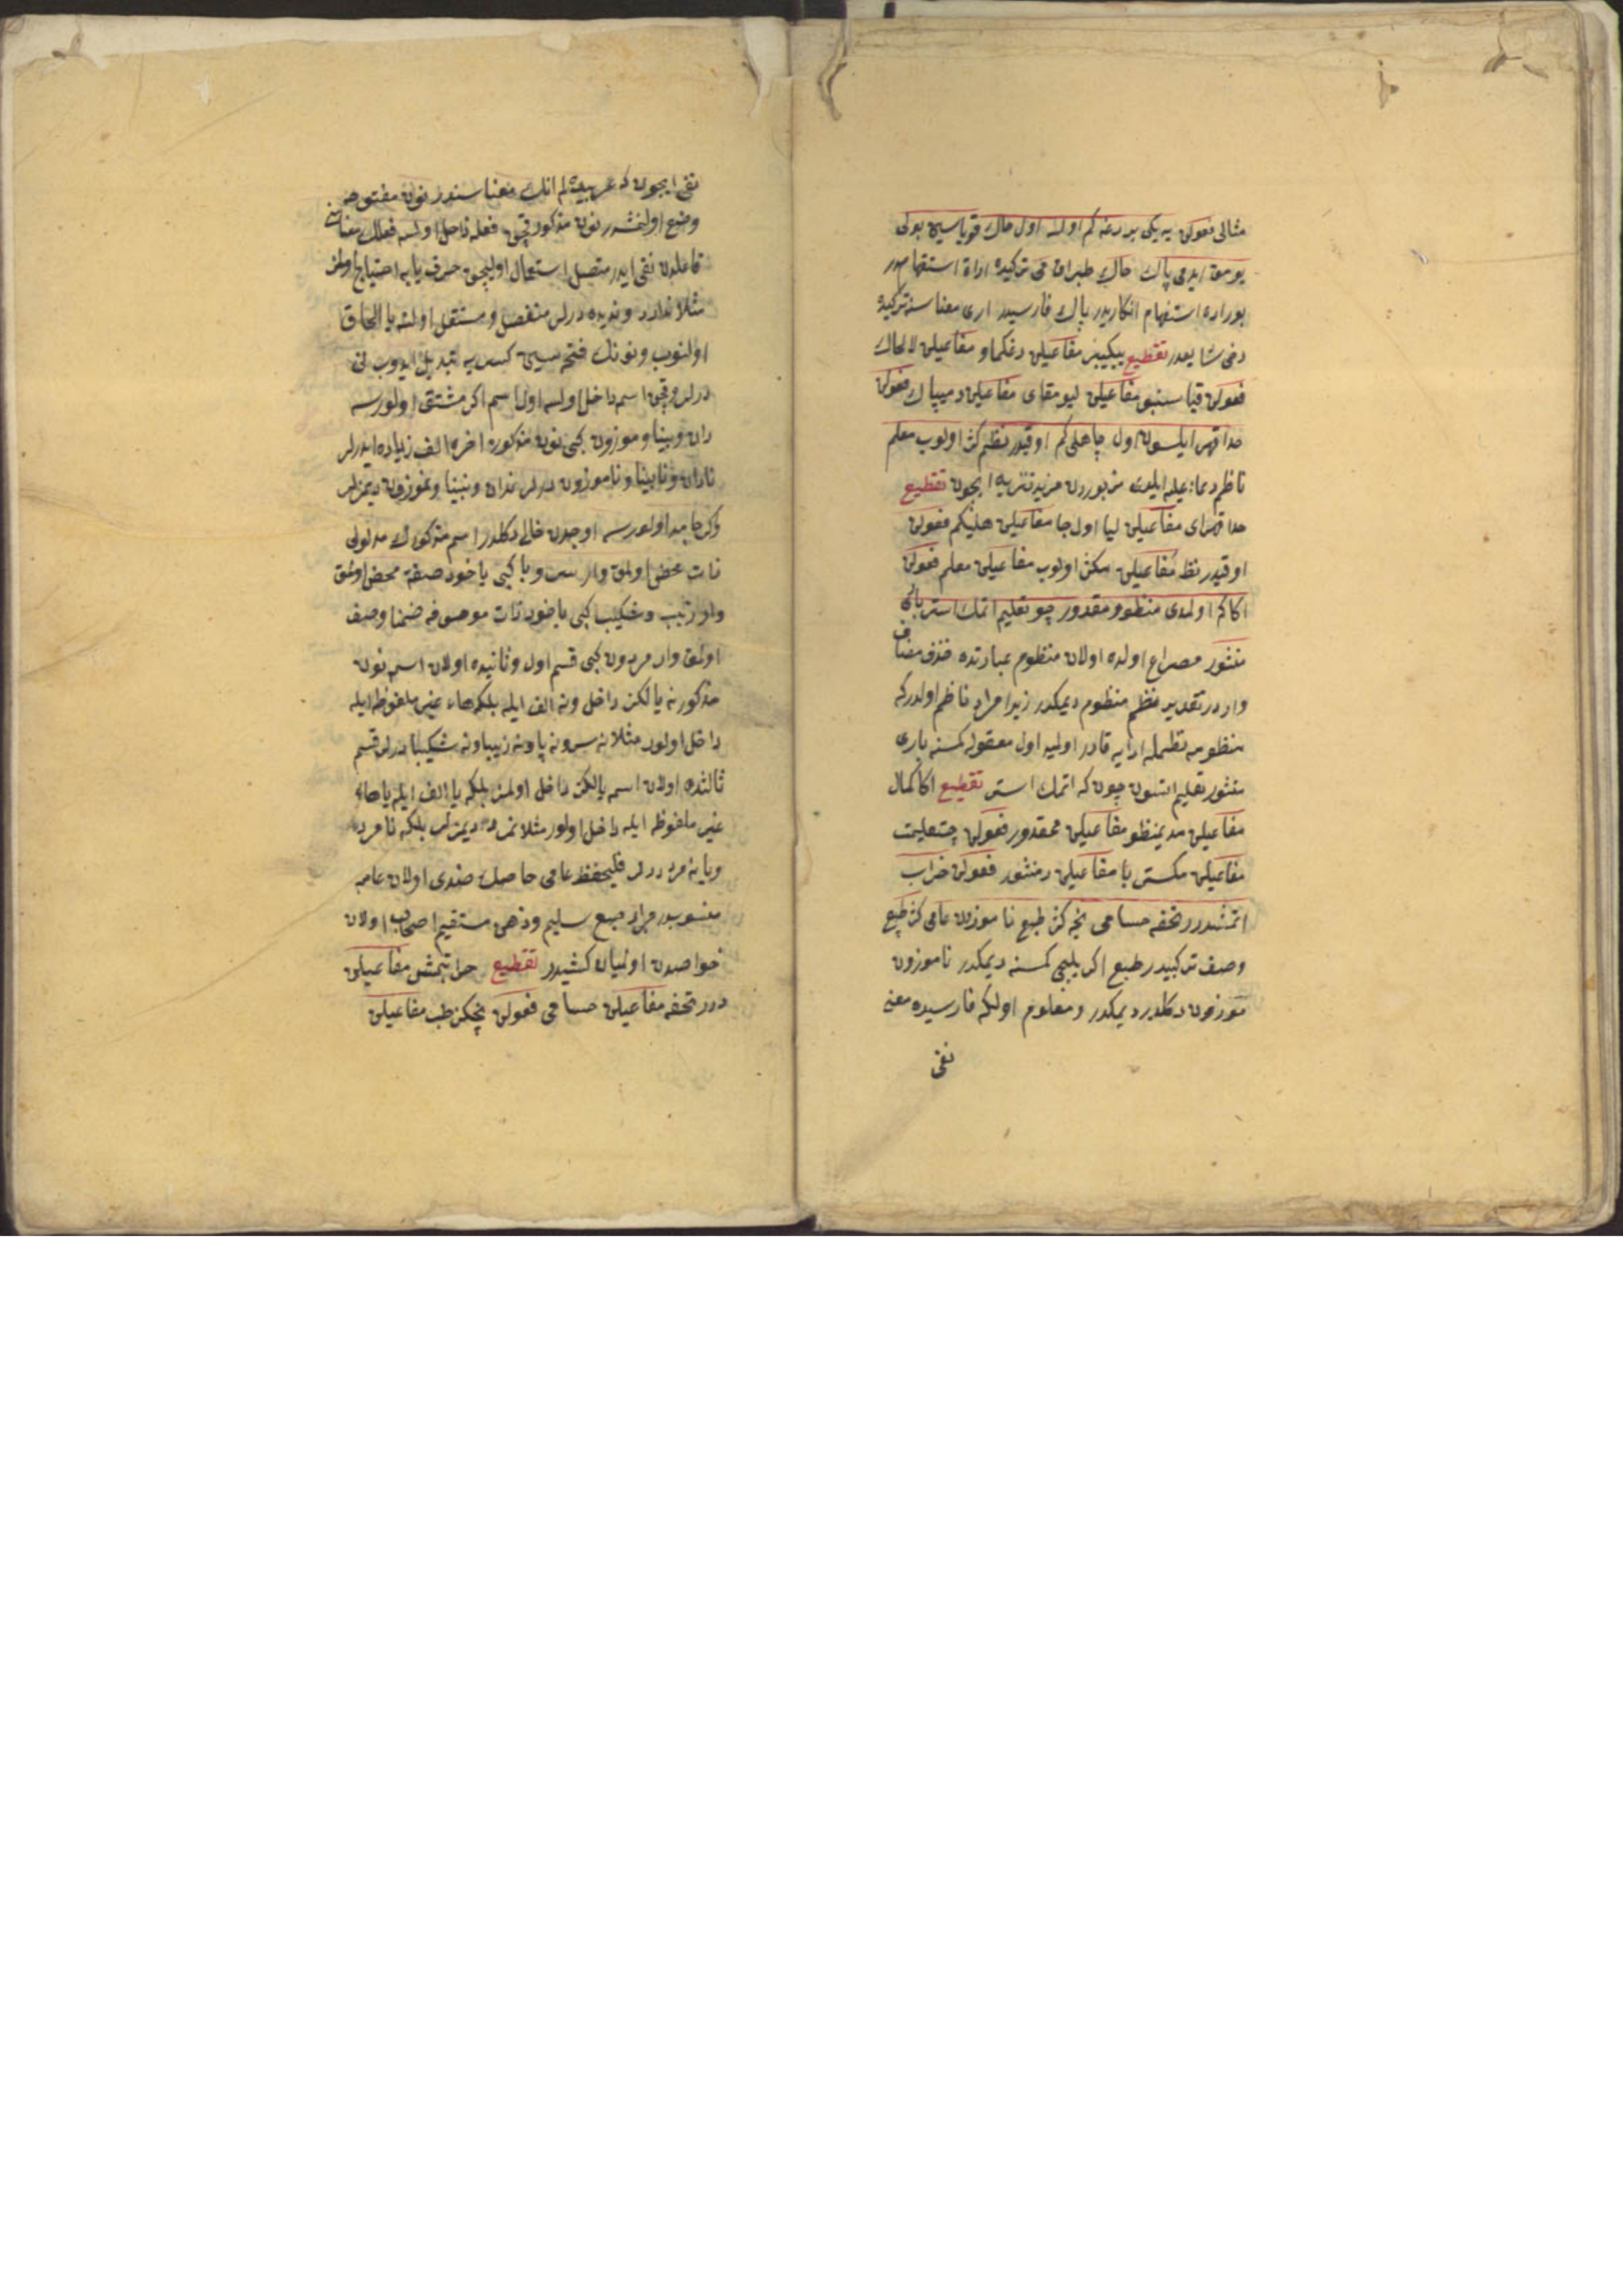 مثالی فعولن یه یکی بر رغه کم اولسه اول خاك قویاسین بولی
یومق ایدمی پاك خاك طبراق می ترکیده اداة استفهامدر
بوراده استفهام انکاریدر پاك فارسیدر اری معناسنه ترکیده
دخی شایعدر تقطیع ییکیبر مفاعیلن دغکماو مفاعیلن لالخاك
فعولن قیاسنبو مفاعیلن لیومقای مفاعیلن دمیپاك فعولن
خدا قهر ایلسون اول جاهلی کم اوقیدر نظم کژ اولوب معلم
ناظم دعاء علیه ایلدی مزبوردن مزید تنزیه ایچون تقطیع
خدا قهرای مفاعیلن لیا اول جا مفاعیلن هلیکم فعولن
اوقیدر نظ مفاعیلن مکژ اولوب مفاعیلن معلم فعولن
اکا کم اولمدی منظوم مقدور چو تعلیم اتمك استر باری
منثور مصراع اولده اولان منظوم عبارتده حذف مضاف
وار در تقدیر نظم منظوم دیمکدر زیرا مراد ناظم اولدرکه
منظومه نظمله ادایه قادر اولمیه اول معقوله کمسنه باری
منثور تعلیم اتسون چون که اتمك استر تقطیع اکا کمال
مفاعیلن مدیمنظو مفاعیلن ممقدور فعولن چتعلیمت
مفاعیلن مکستر با مفاعیلن رمنثور فعولن خراب
اتمشدر تحفه حسامی نجه کژ طبع نا موزون عامی کژ طبع
وصف ترکبیدر طبع اکری بلیجی کمسنه دیمکدر ناموزون
موزون دکلدر دیمکدر و معلوم اوله که فارسیده معنی
نفی
نفی ایچون که عربیده لم انك معناسندر نون مفتوحه
وضع اولنمشدر نون مذکور قچن فعله داخل اولسه فعلك معناسنی
فاعلدن نفی ایدر متصل استعمال اولیجق حرف یایه احتیاج اولمز
مثلا ندارد و ندیده درلر منفصل و مستقل اولسه یا الحاق
اولنوب و نونك فتحه سی کسریه تبدیل ایدوب نی
درلر و قچن اسمه داخل اولسه اول اسم اکر مشتق اولورسه
دان و بینا و موزون کبی نون مذکورك اخره الف زیاده ایدرلر
نادان و نابینا و ناموزون درلر ندان و نبینا و نموزون دیمزلر
واکر جامد اولورسه اوجدن خالی دکلدر اسم مذکورك مدلولی
ذات محض اولمق وار سر و پا کبی یاخود صفة محض اولمق
وار زیب و شکیب کبی یاخود ذات موصوفه ضمنا وصف
اولمق وار مردون کبی قسم اول و ثانیده اولان اسمه نون
مذکور نه یالکز داخل و نه الف ایله بلکه هاء غیر ملفوظه ایله
داخل اولور مثلا نه سر و نه پا و نه زیبا و نه شکیبا درلر قسم
ثالثده اولان اسمه یالکز داخل اولمز بلکه یا الف ایله یا هاء
غیر ملفوظه ایله داخل اولور مثلا نمرد دیمزلر بلکه نامرد
ویا نه مرد درلر فلیحفظ عامی خاصك ضدی اولان عامه
منسوبدر مراد طبع سلیم و ذهن مستقیم اصحابی اولان
خواصدن اولمیان کشیدر تقطیع خراتبمش مفاعیلن
در تحفه مفاعیلن حسامی فعولن نجکژ طب مفاعیلن